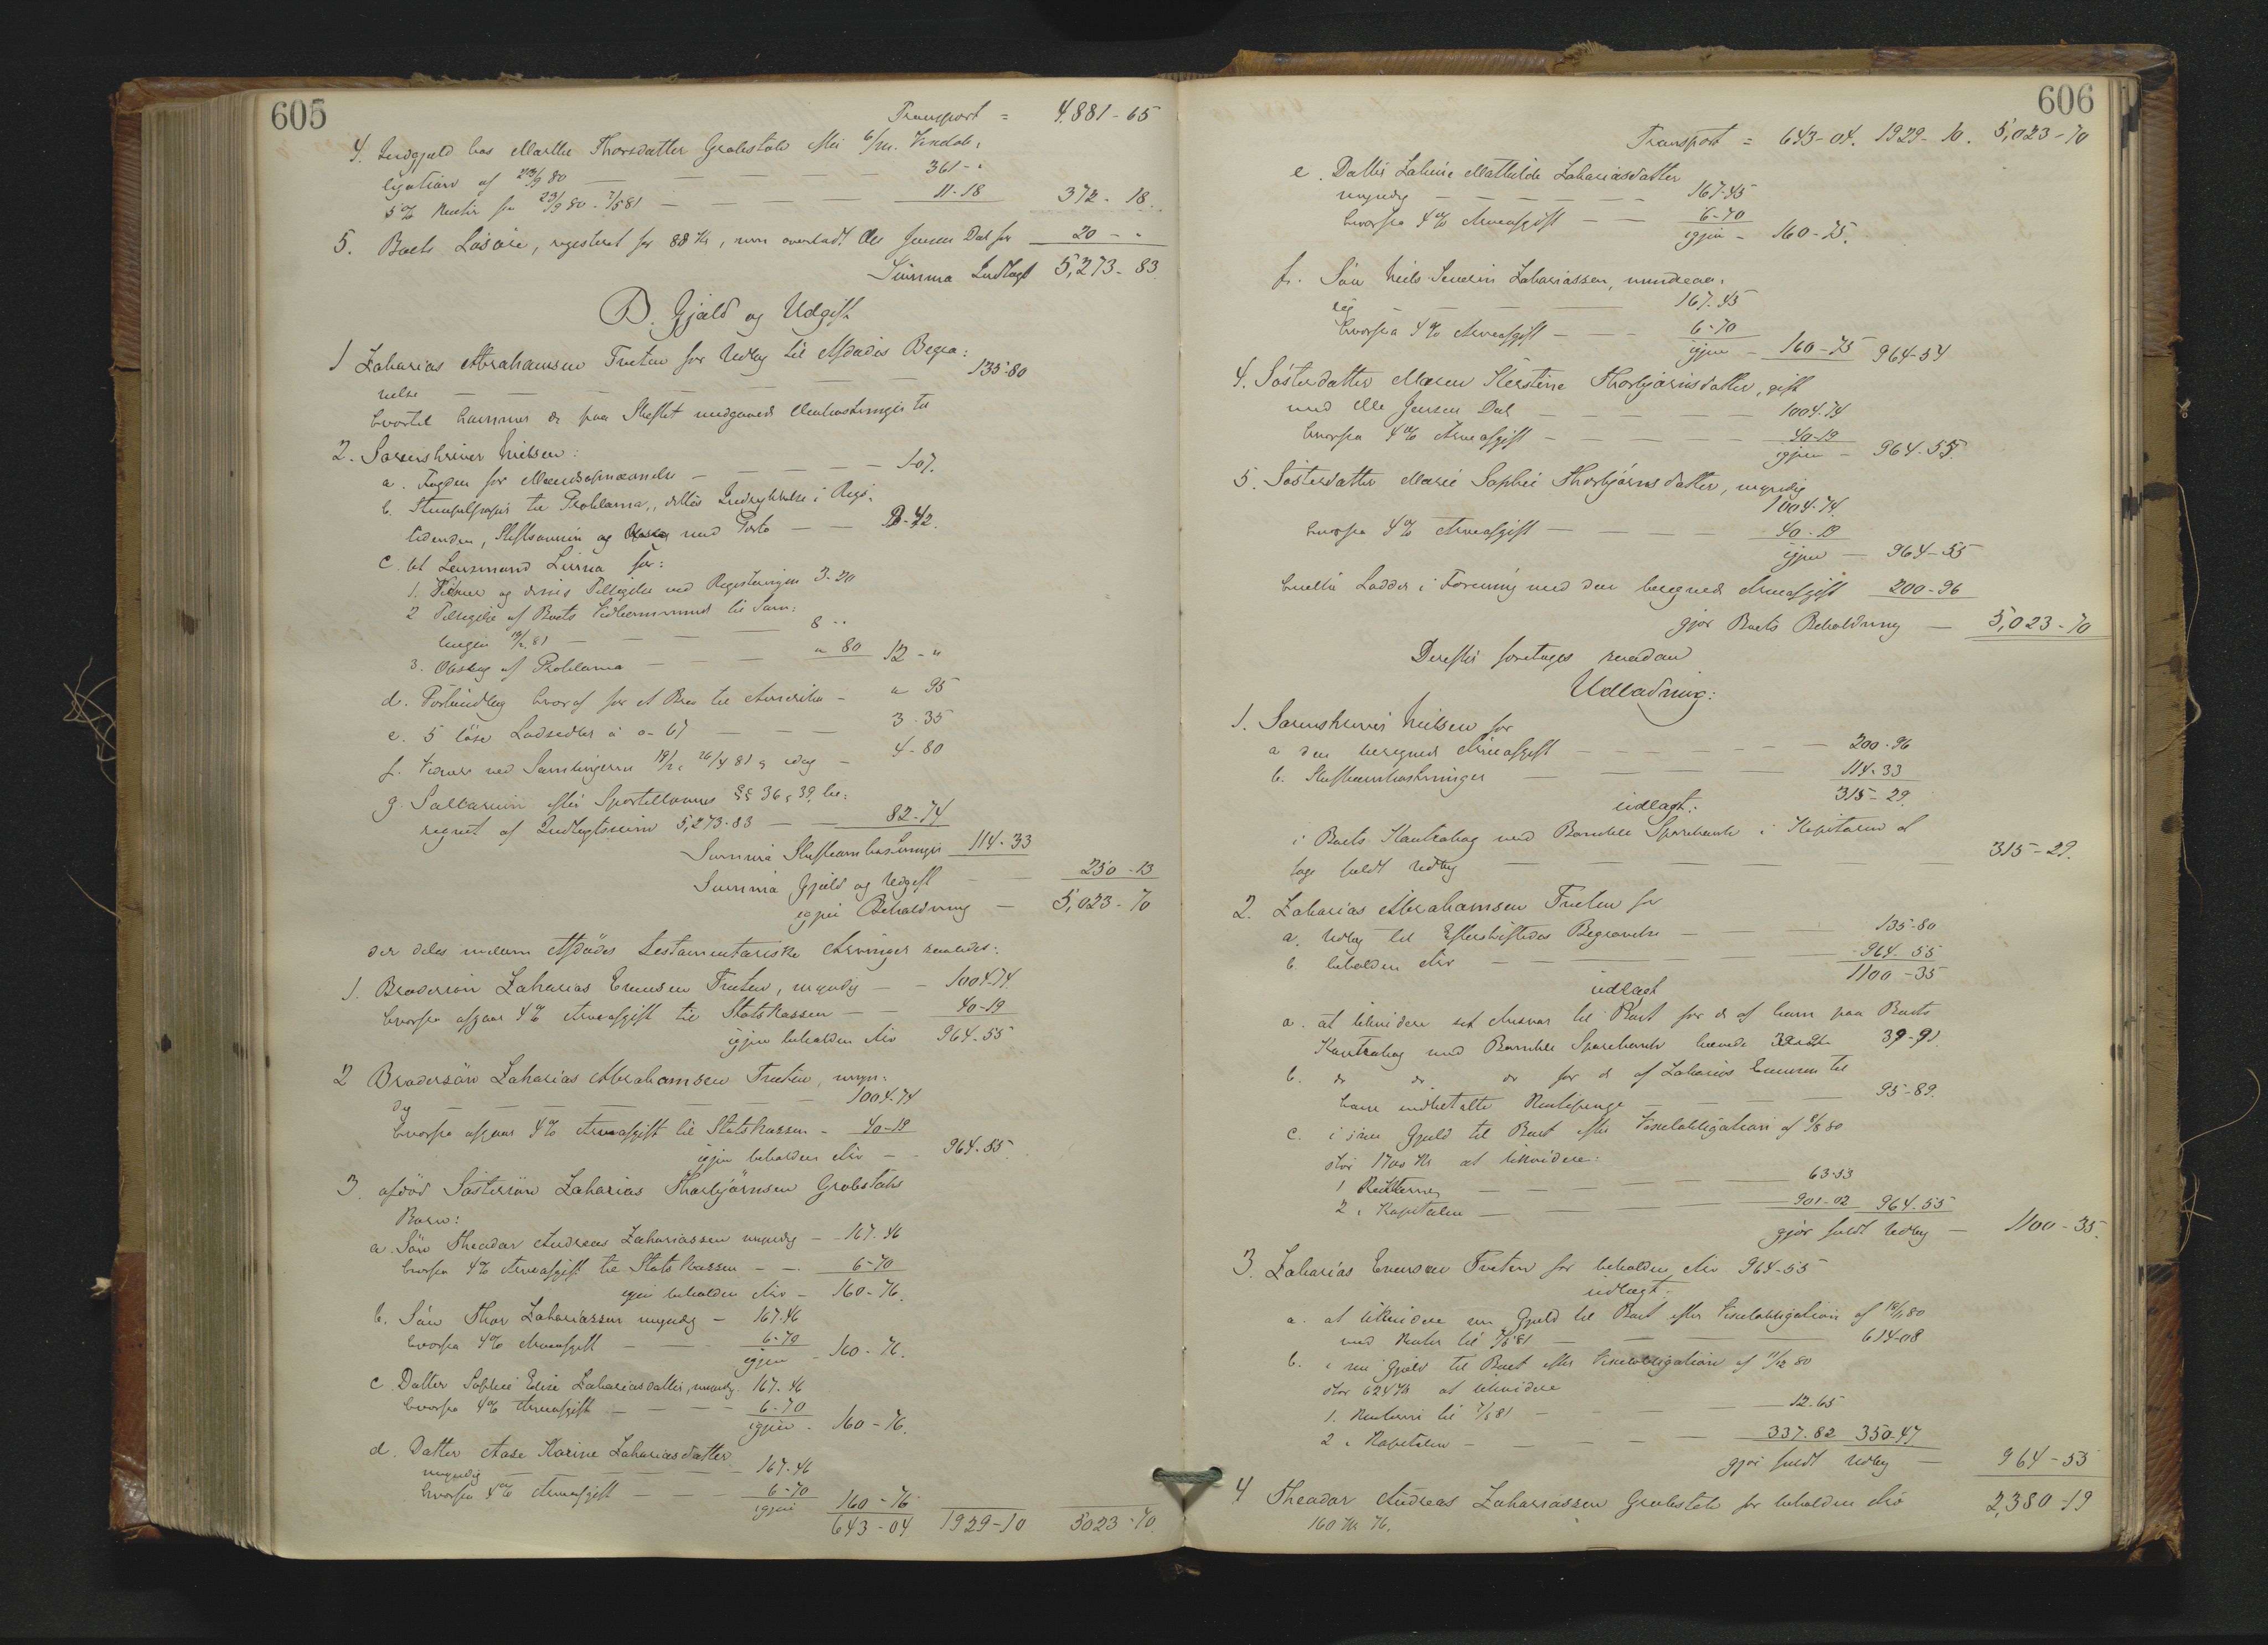 605
Transport = 4.881-65
4. Indgjæld hos Marthe Thorsdatter Grobstok efter
ligation af 23/9 80 — — — — 361-"
5% Renter fra 23/9 80 - 7/5 81 — — — — 11-18 372-18.
5. Boets Løsøre, registeret for 88 Kr, som overladt Ole Jensen Dal for 20-"
Summa Indtægt 5,273-83
D. Gjæld og Udgift
1 Zakarias Abrahamsen Tveten for Udlæg til Afdødes Begra=
velse — — — — 135-80
hvortil kommer de paa Skiftet medgaaede Omkostninger til
2. Sorenskriver Nielsen:
a. Fogden for Mændsopnævnelse — — — 1-07.
b. Stempelpapir til Proklama, dettes Indrykkelse i Rigs=
tidenden, Skiftsavisen og med Porto — — -42.
c. til Lensmand for:
1. Vidner og Tilsigelse ved Registeringen 3-20
2 Tilsigelse af Boets Vedkommende til Sam=
lingen 19/2 81 — — — 8 "
3. Opslag af Proklama — — — " 80 12-"
d. for et Brev til Amerika — " 95
e. 5 løse Lodsedler à 0-67 — — — 3-35
f. Vidner ved Samlingerne 19/2, 26/4 81 & idag — 4-80
g. Sallarium efter Sportellovens §§ 36 & 39, be=
regnet af Indtægtssum 5,273-83 — — 82-74
Summa Skifteomkostninger 114-33
Summa Gjæld og Udgift — 250-13
igjen Beholdning — 5,023-70
der deles mellem Afdødes testamentariske Arvinger saaledes:
1. Brodersøn Zakarias Evensen Tveten, myndig — — 1004-74.
hvorfra afgaar 4% Arveafgift til Statskassen — — 40-19
igjen beholden Arv 964-55
2 Brodersøn Zakarias Abrahamsen Tveten, myn=
dig — — — — — — 1004-74
hvorfra afgaar 4% Arveafgift til Statskassen — 40-19
igjen beholden Arv — - 964-55.
3. afdød Søstersøn Zakarias Thorbjørnsen Grobstoks
Børn:
a. Søn Theodor Andreas Zakariassen myndig — - 167-46
hvorfra 4% Arveafgift til Statskassen — — 6-70
igjen beholden Arv — 160-76.
b. Søn Thor Zakariassen myndig — 167-46
hvorfra 4% Arveafgift — — 6-70
igjen - 160-76.
c. Datter Sophie Elise Zakariasdatter, myndig. 167-46
hvorfra 4% Arveafgift — — — 6-70
igjen - 160-76.
d. Datter Aase Karine Zakariasdatter
myndig — — — — 167-46
hvorfra 4% Arveafgift — — — 6-70
igjen 160-76
643-04 1929-10 5023-70.
606
Transport = 643-04. 1929-10. 5,023-70
e. Datter Mathilde Zakariasdatter
myndig — — — — — 167-45
hvorfra 4% Arveafgift — — 6-70
igjen — 160-75.
f. Søn Niels Severin Zakariassen, mindreaa=
rig — — — 167-45
hvorfra 4% Arveafgift — — — 6-70
igjen — 160-75 964-54
4. Søsterdatter Maren Kirstine Thorbjørnsdatter, gift
med Ole Jensen Dal — — — — 1004-74
hvorfra 4% Arveafgift — — — — 40-19
igjen — 964-55.
5. Søsterdatter Marie Sophie Thorbjørnsdatter, myndig
1004-74.
hvorfra 4% Arveafgift — — — — 40-19
igjen — 964-55
hvilke Lodder i Forening med den beregnede Arveafgift 200-96
gjør Boets Beholdning — 5,023-70
Derefter foretages saadan
Udlodning:
1. Sorenskriver Nielsen for
a den beregnede Arveafgift — — — — — — 200-96
b. Skifteomkostninger — — — — 114-33
315-29.
udlagt:
i Boets Kontrabog med Bamble Sparebank i Kapitalen at
tage fuldt Udlæg — — — — — 315-29.
2. Zakarias Abrahamsen Tveten for
a. Udlæg til Efterskiftedes Begravelse — — — 135-80
b. beholden Arv — — — — — — 964-55
1100-35
udlagt
a. at likvidere sit Ansvar til Boet for de af ham paa Boets
Kontrabog med Bamble Sparebank hævede 39-91.
b. do do do for de af Zakarias Evensen til
ham indbetalte Rentepenge — — — — 95-89.
c. i sin Gjæld til Boet efter Vexelobligation af
stor 1700 Kr at likvidere:
1 Renterne — — — — — 63-53
2 i Kapitalen — — — — — 901-02 964-55
gjør fuldt Udlæg — 1100-35.
3. Zakarias Evensen Tveten for beholden Arv 964-55
udlagt:
a. at likvidere sin Gjæld til Boet efter Vexelobligation af
med Renter til 7/5 81 — — — 614-08
b. i sin Gjæld til Boet efter Vexelobligation af 11/12 80
stor 624 Kr at likvidere
1. Renterne til 7/5 81 — — — — 12-65
2 i Kapitalen — — — — 337-82 350-47
gjør fuldt Udlæg — 964-55
4 Theodor Andreas Zakariassen Grobstok for beholden Arv 2,380-19
160 Kr 76.